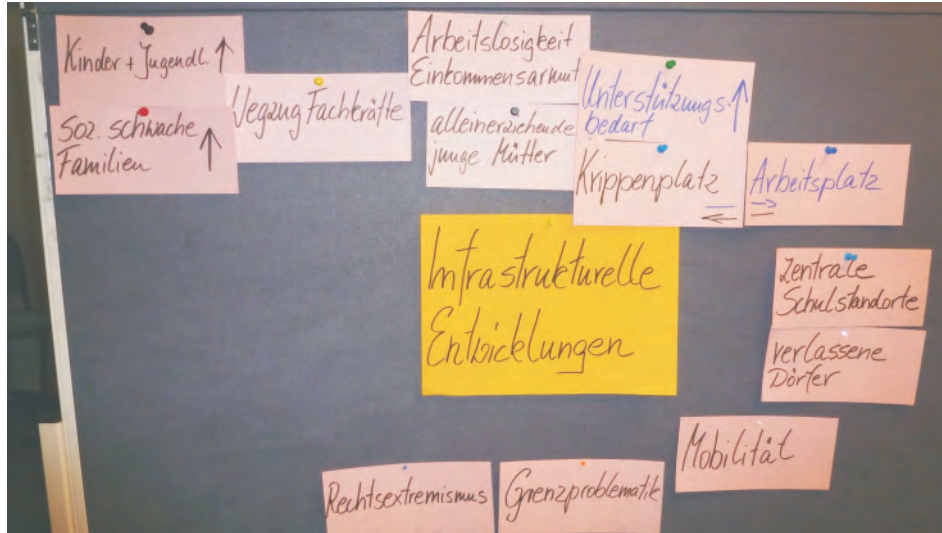 Kinder + Jugendl. ↑
Soz. schwache ↑
Familien
Wegzug Fachkräfte
Arbeitslosigkeit
Einkommensarmut
alleinerziehende
junge Mütter
Unterstützungs- ↑
bedarf
Krippenplatz
←
Arbeitsplatz
→
Infrastrukturelle
Entwicklungen
Zentrale
Schulstandorte
verlassene
Dörfer
Mobilität
Rechtsextremismus
Grenzproblematik